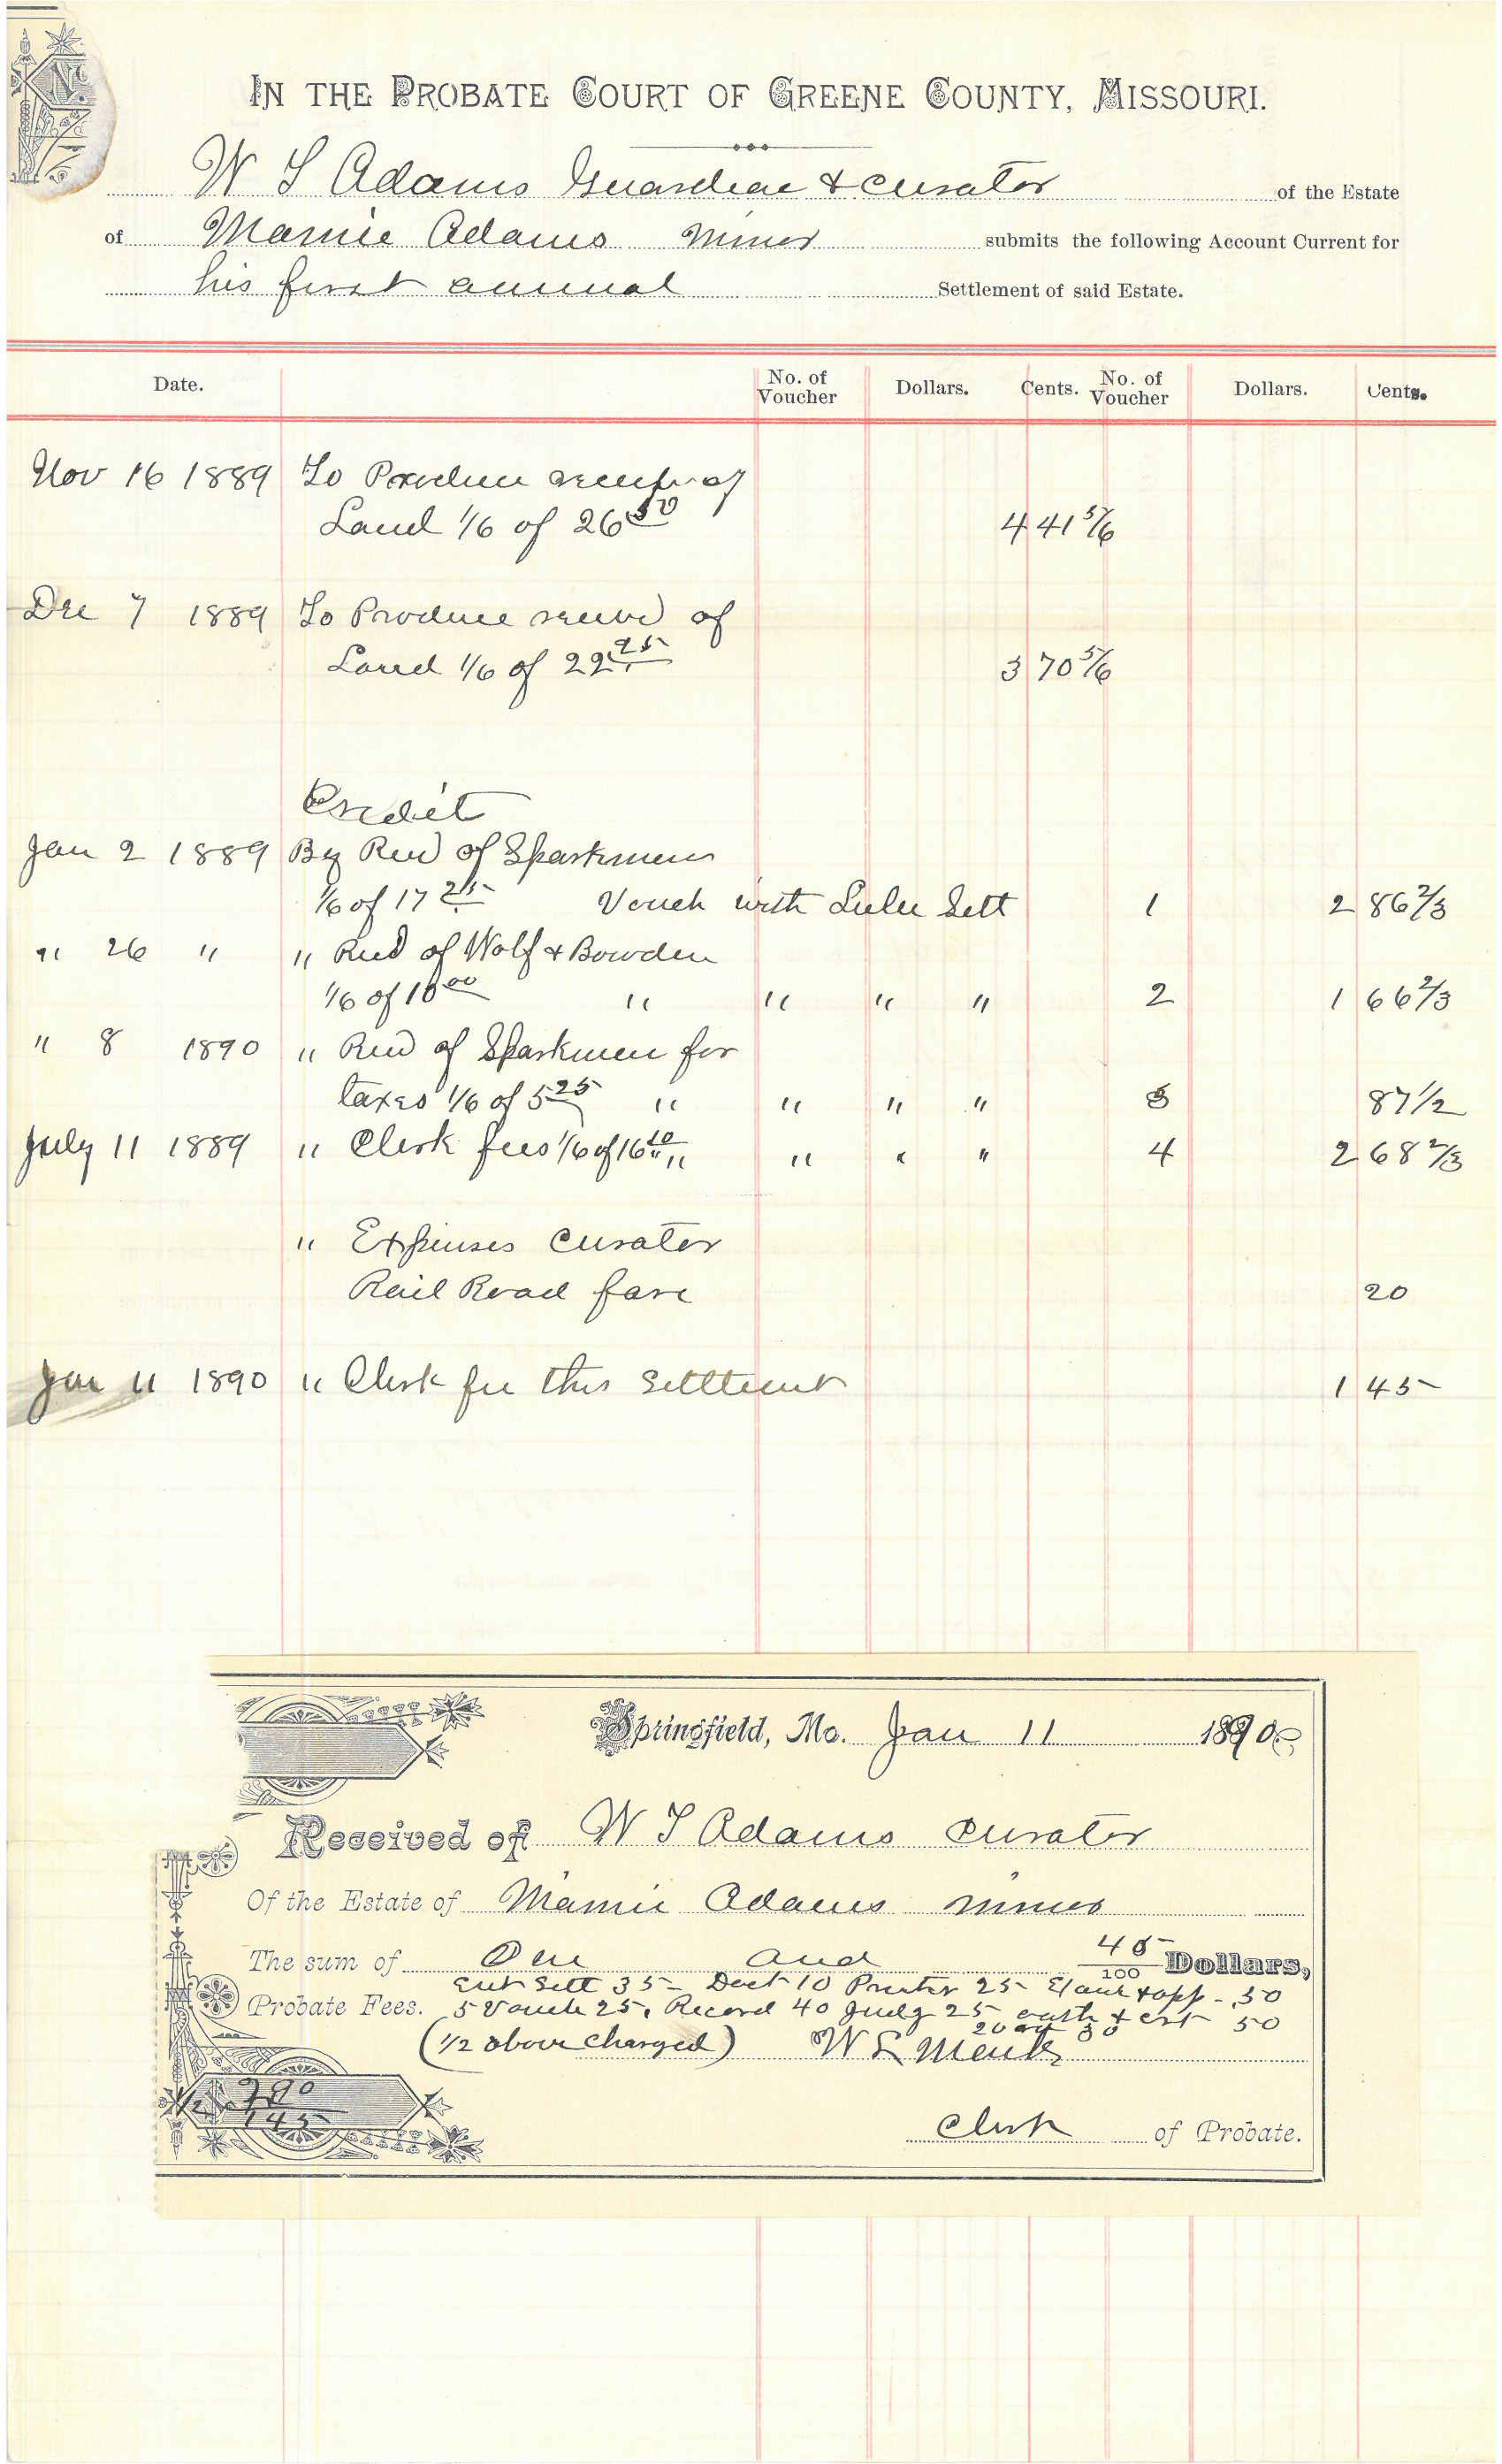 IN THE PROBATE COURT OF GREENE COUNTY, MISSOURI.
W S Adams Guardian & curator of the Estate
of Mamie Adams Minor submits the following Account Current for
his first annual Settlement of said Estate.
Date. No. of Voucher Dollars. Cents. No. of Voucher Dollars. Cents.
Nov 16 1889 To Produce of
Land 1/6 of 26 50 4 41 5/6
Dec 7 1889 To Produce of
Land 1/6 of 22 25 3 70 5/6
Credit
Jan 2 1889 By Recd of Sparkman
1/6 of 17 25 Vouch with Lulu Sett 1 2 86 2/3
" 26 " " Recd of Wolf & Bowden
1/6 of 10 00 " " " " 2 1 66 2/3
" 8 1890 " Recd of Sparkman for
taxes 1/6 of 5 25 " " " " 3 87 1/2
July 11 1889 " Clerk fees 1/6 of 16 10 " " " " " 4 2 68 2/3
" Expenses curator
Rail Road fare 20
Jan 11 1890 " Clerk fee this Settlement 1 45
Springfield, Mo. Jan 11 1890
Received of W S Adams curator
Of the Estate of Mamie Adams minor
The sum of One and 45/100 Dollars,
Sett 35 10 25 & app 50
Probate Fees. 5 Vouch 25, Record 40 Judg 25 oath & crt 50
20 30
(1/2 above charged) W L
290
1/2 145
Clerk of Probate.